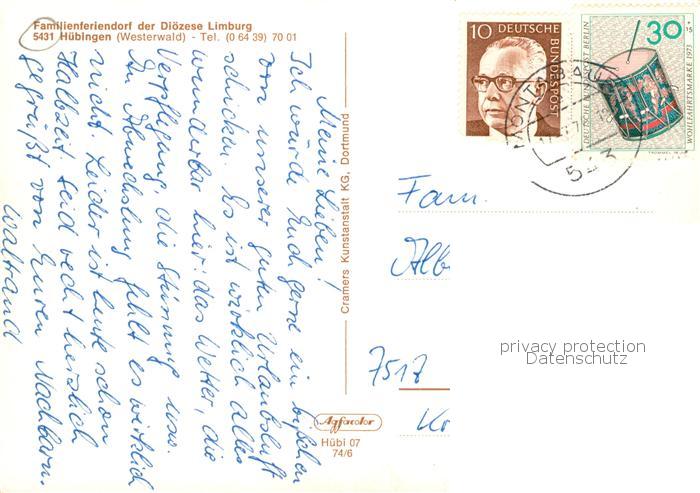 Familienferiendorf der Diözese Limburg
5431 Hübingen (Westerwald) - Tel. (0 64 39) 70 01
Meine Lieben!
Ich würde Euch gerne ein bißchen
von unserer guten Urlaubsluft
schicken. Es ist wirklich alles
wunderbar hier: das Wetter, die
Verpflegung, die Stimmung usw.
An Abwechslung fehlt es wirklich
nicht. Leider ist heute schon
Halbzeit. Seid recht herzlich
gegrüßt von Euren Nachbarn.
Waltraud
Cramers Kunstanstalt KG, Dortmund
Agfacolor
Hübi 07
74/6
10 DEUTSCHE
BUNDESPOST
30
+15
WOHLFAHRTSMARKE 1973
DEUTSCHE BUNDESPOST BERLIN
TROMMEL
MONTABAUR
543
Fam.
Alb
7517
Kr
privacy protection
Datenschutz